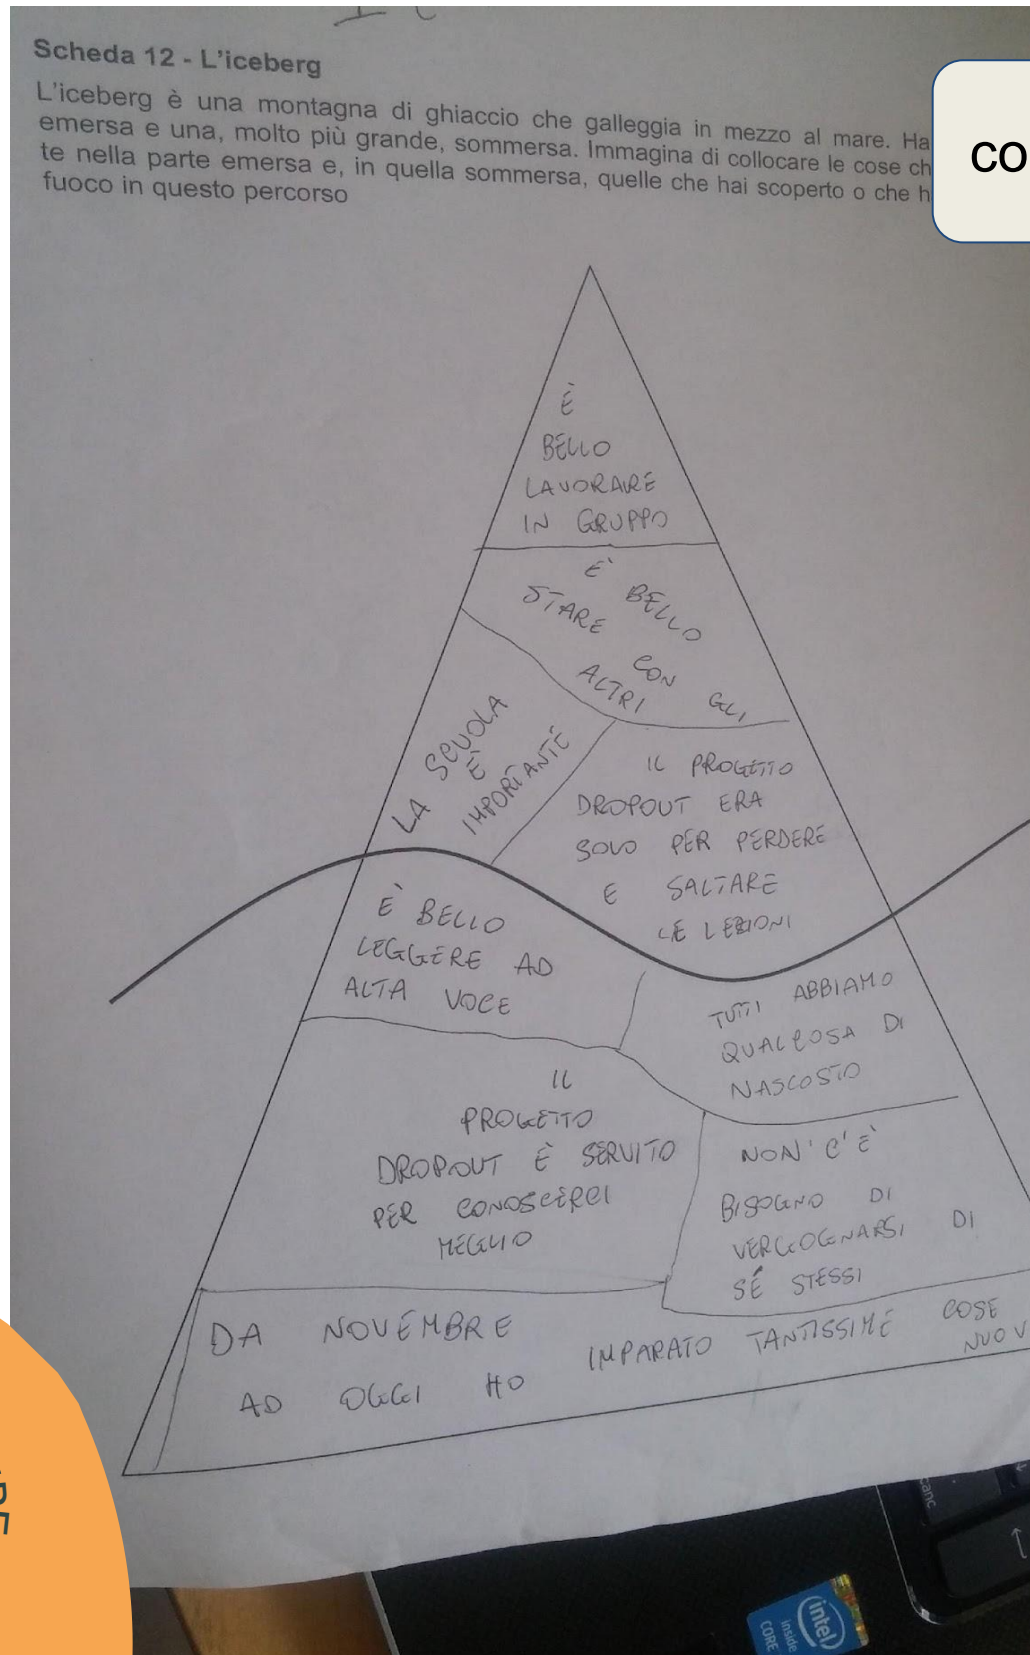 Scheda 12 - L'iceberg
L'iceberg è una montagna di ghiaccio che galleggia in mezzo al mare. Ha
emersa e una, molto più grande, sommersa. Immagina di collocare le cose ch
te nella parte emersa e, in quella sommersa, quelle che hai scoperto o che h
fuoco in questo percorso
CO
È
BELLO
LAVORARE
IN GRUPPO
È BELLO
STARE CON GLI
ALTRI
LA SCUOLA
È
IMPORTANTE
IL PROGETTO
DROPOUT ERA
SOLO PER PERDERE
E SALTARE
LE LEZIONI
È BELLO
LEGGERE AD
ALTA VOCE
TUTTI ABBIAMO
QUALCOSA DI
NASCOSTO
IL
PROGETTO
DROPOUT È SERVITO
PER CONOSCERCI
MEGLIO
NON' C'È
BISOGNO DI
VERGOGNARSI DI
SÉ STESSI
DA NOVEMBRE
AD OGGI HO
IMPARATO TANTISSIME COSE
NUOV
canc
intel
inside
CORE